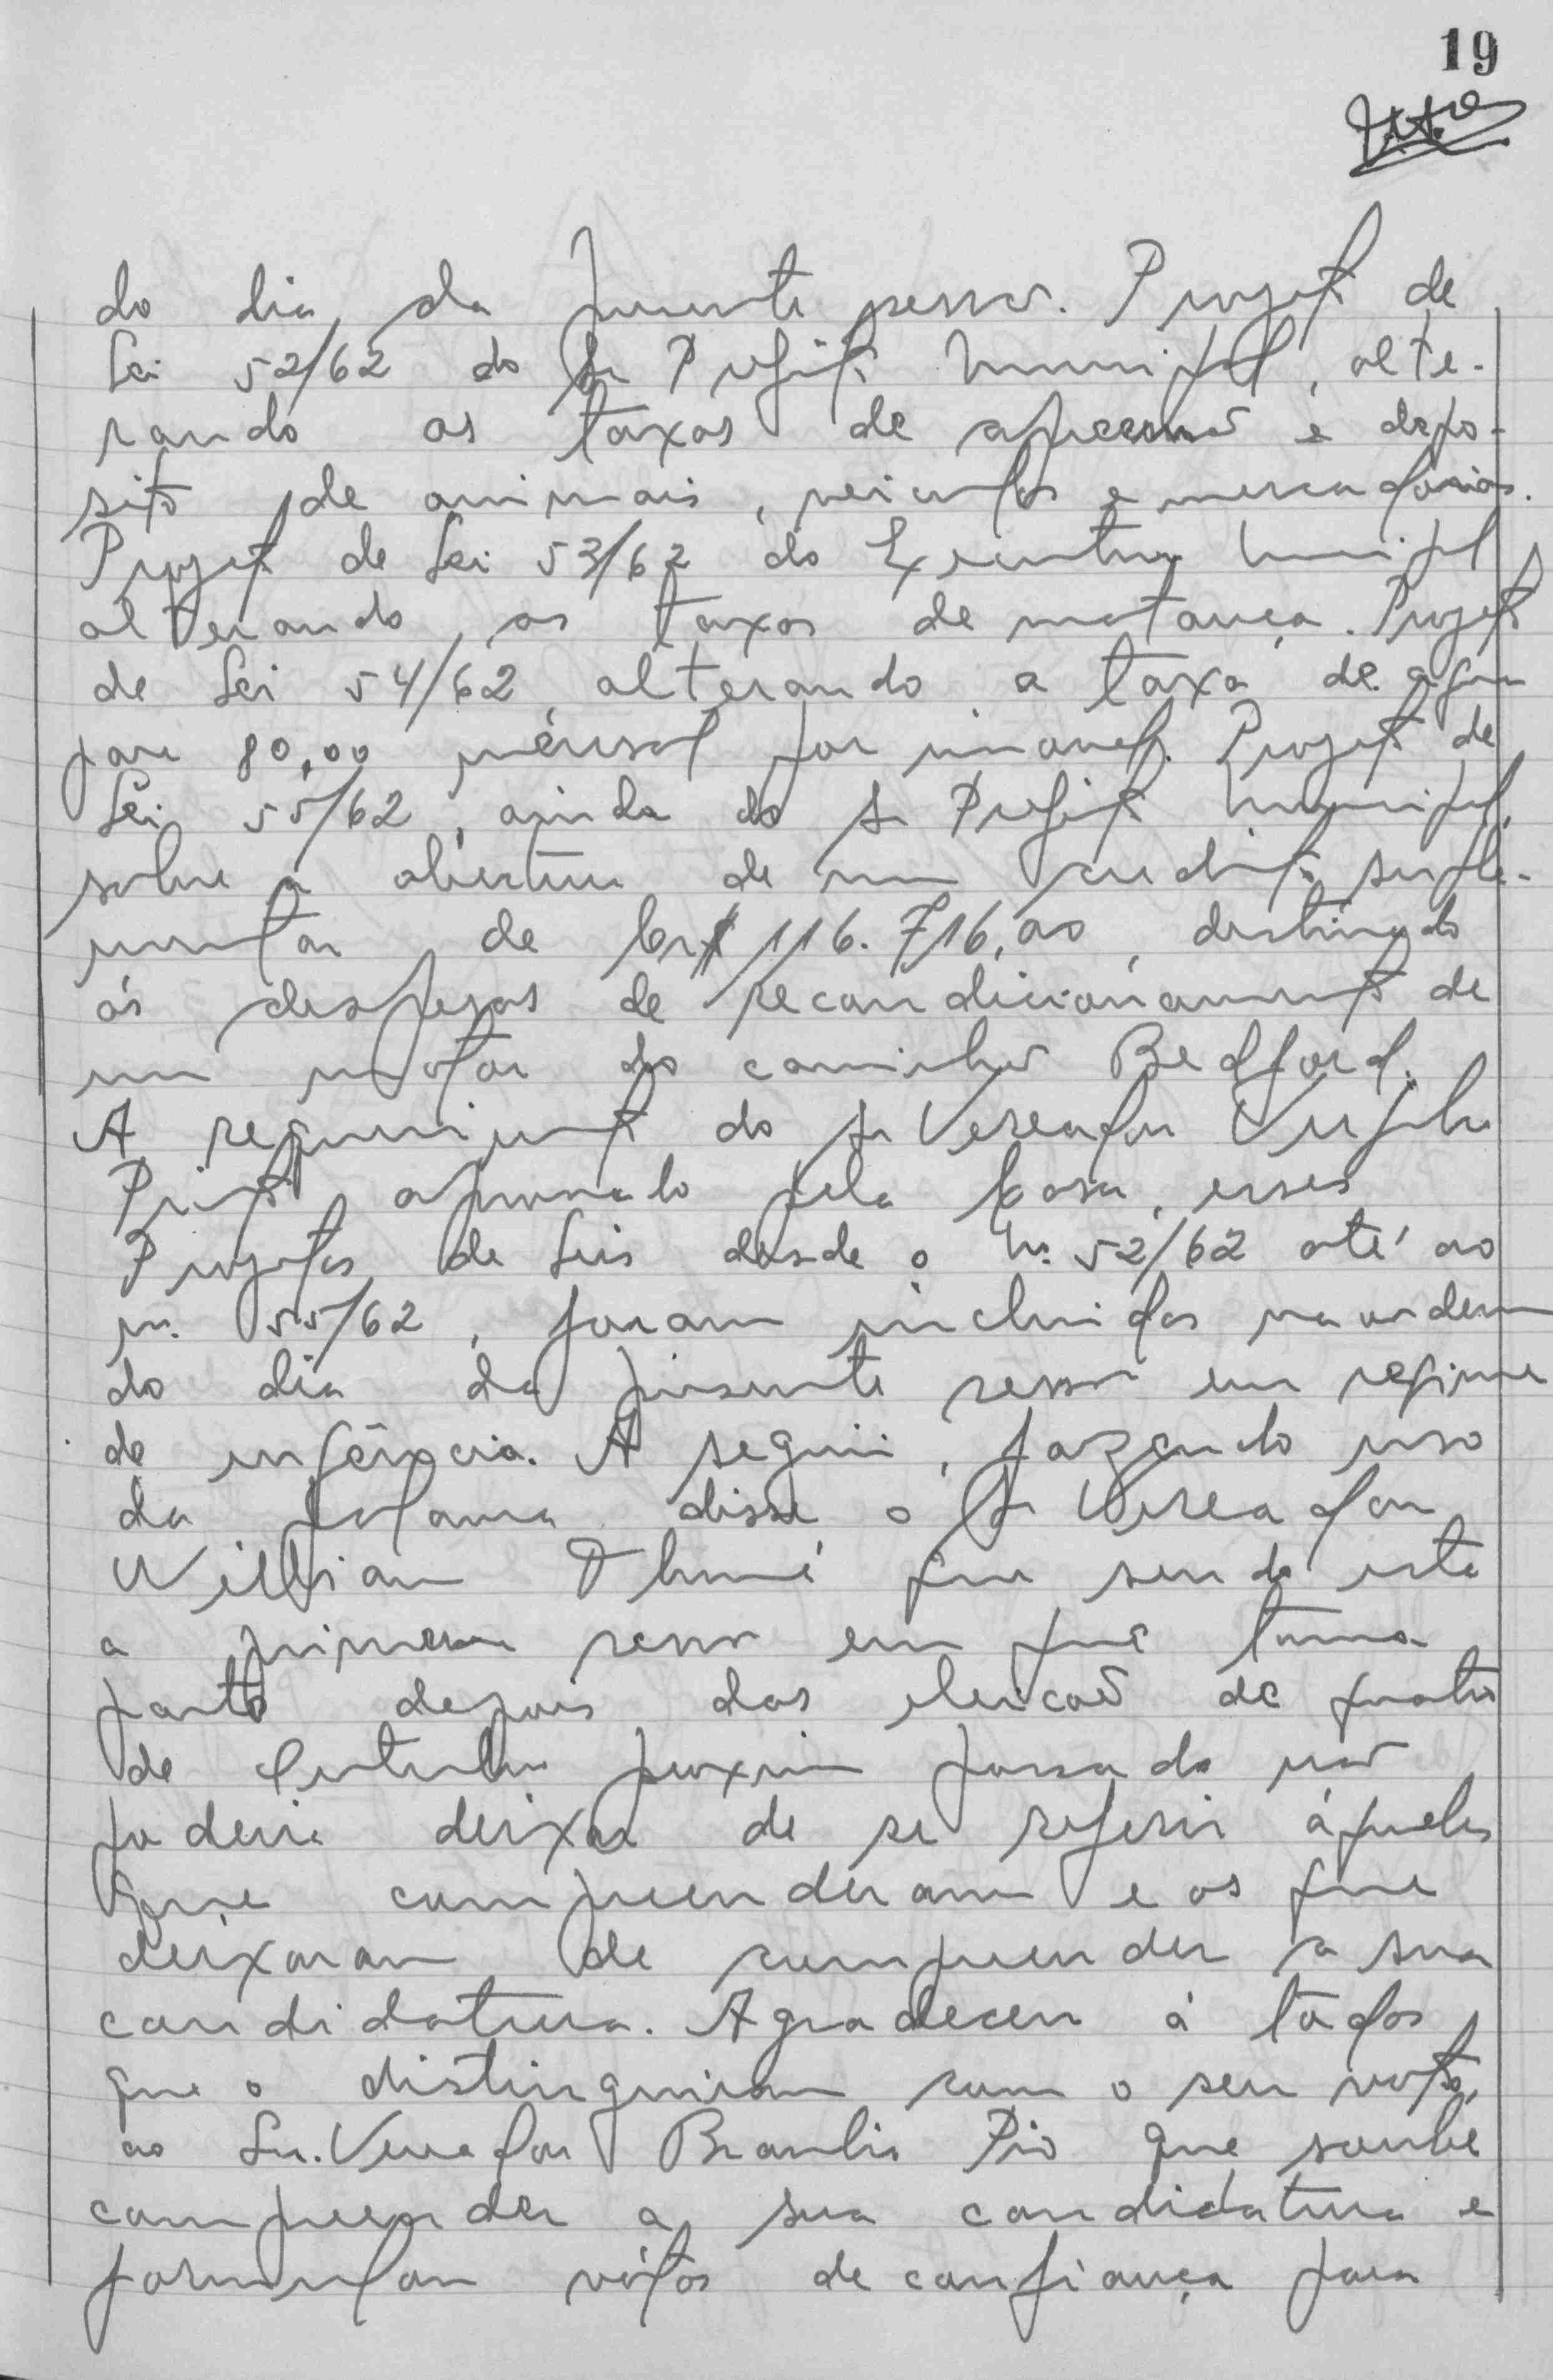 19
do dia da presente sessão. Projeto de
Lei 52/62 do Sr Prefeito Municipal, alte-
rando as taxas de apreensão e depo-
sito de animais, veiculos e mercadorias.
Projeto de Lei 53/62 do Executivo Municipal
alterando as taxas de matança. Projeto
de Lei 54/62, alterando a taxa de agua
para 80,00 mensal por imovel. Projeto de
Lei 55/62, ainda do Sr Prefeito Municipal,
sobre a abertura de um credito suple-
mentar de Cr$ 116.716,00, destinado
ás despesas de recondicionamento de
um motor do caminhão Bedford.
A requerimento do Sr Vereador Virgilio
aprovado pela Casa, esses
Projetos de Leis desde o Nº 52/62 até ao
nº 55/62, foram incluidos na ordem
do dia da presente sessão em regime
de urgência. A seguir, fazendo uso
da palavra disse o Sr Vereador
Willian Thomé que sendo esta
a primeira sessão em que toma
parte depois das eleicoẽs de quatro
de Outubro proximo passado não
poderia deixar de se referir áqueles
que compreenderam e os que
deixaram de compreender a sua
candidatura. Agradeceu á todos
que o distinguiram com o seu voto,
ao Snr. Vereador Braulio Pio que soube
compreender a sua candidatura e
formulou vótos de confiança para